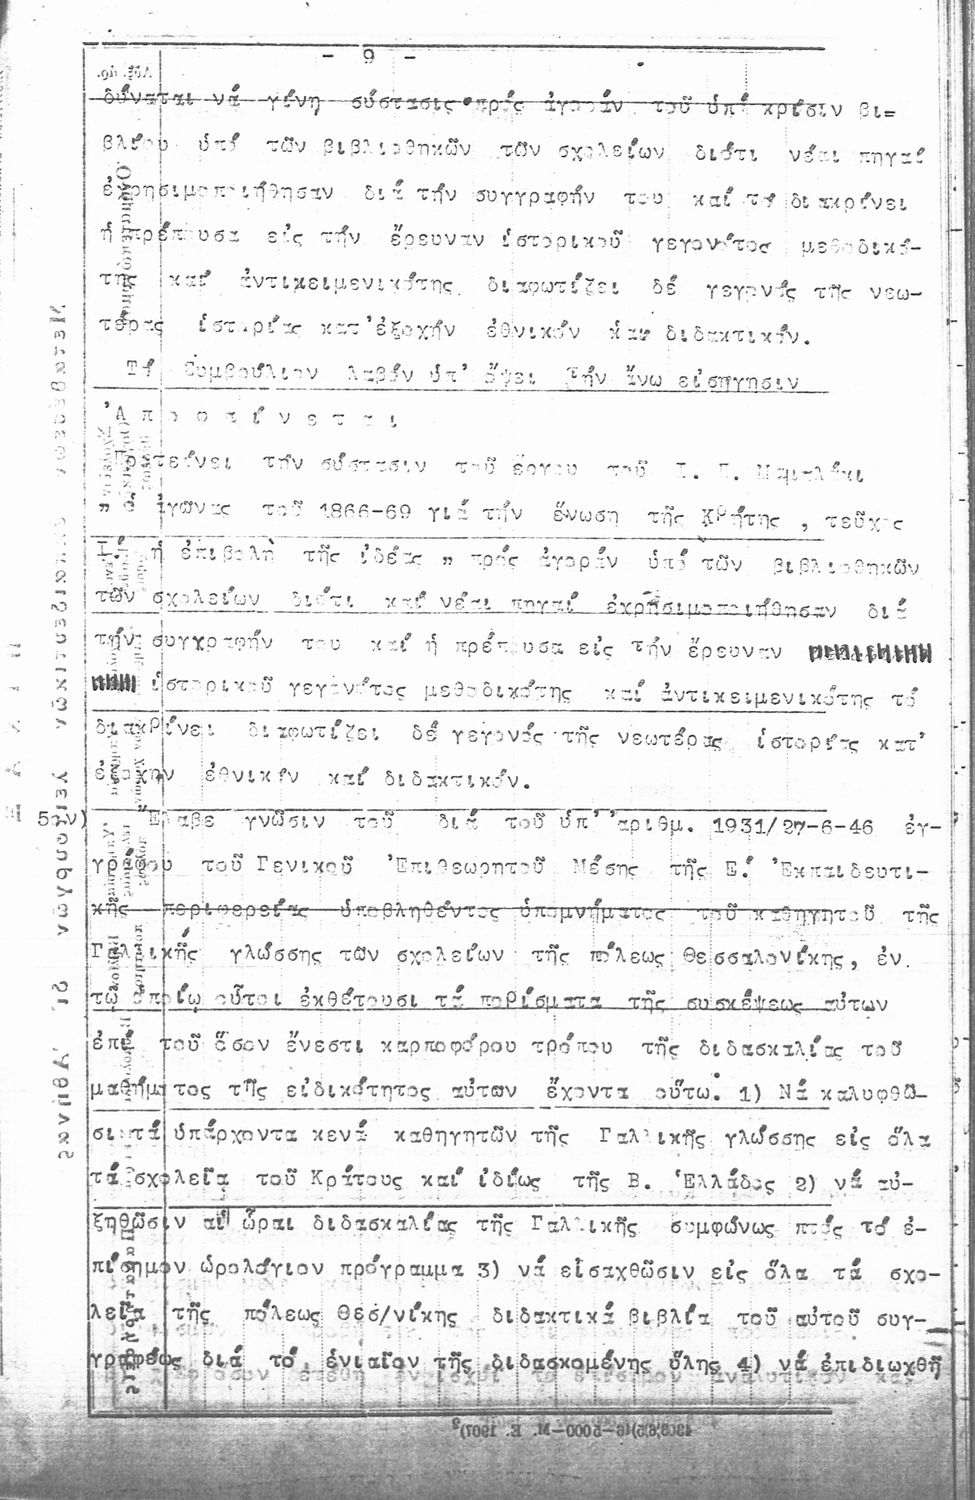 - 9 -
δύναται νά γίνη σύστασις πρός ἀγοράν τοῦ ὑπό κρίσιν βι=
βλίου ὑπό τῶν βιβλιοθηκῶν τῶν σχολείων διότι νέαι πηγαί
ἐχρησιμοποιήθησαν διά τήν συγγραφήν του καί τό διακρίνει
ἡ πρέπουσα εἰς τήν ἔρευναν ἱστορικοῦ γεγονότος μεθοδικό-
της καί ἀντικειμενικότης διαφωτίζει δέ γεγονός τῆς νεω-
τέρας ἱστορίας κατ'ἐξοχήν ἐθνικόν καί διδακτικόν.
Τό Συμβούλιον λαβόν ὑπ' ὄψει τήν ἄνω εἰσήγησιν
'Α π ο φ α ί ν ε τ α ι
Προτείνει τήν σύστασιν τοῦ ἔργου τοῦ Ι. Π. Μαμαλάκι
" ὁ ἀγῶνας τοῦ 1866-69 γιά τήν ἕνωση τῆς Κρήτης , τεῦχος
Ι. ἡ ἐπιβολή τῆς ἰδέας " πρός ἀγοράν ὑπό τῶν βιβλιοθηκῶν
τῶν σχολείων διότι καί νέαι πηγαί ἐχρησιμοποιήθησαν διά
τήν συγγραφήν του καί ἡ πρέπουσα εἰς τήν ἔρευναν
ἱστορικοῦ γεγονότος μεθοδικότης καί ἀντικειμενικότης τό
διακρίνει διαφωτίζει δέ γεγονός τῆς νεωτέρας ἱστορίας κατ'
ἐξοχήν ἐθνικόν καί διδακτικόν.
5ον) Ἔλαβε γνῶσιν τοῦ διά τοῦ ὑπ''ἀριθμ. 1931/27-6-46 ἐγ-
γράφου τοῦ Γενικοῦ 'Επιθεωρητοῦ Μέσης τῆς Ε! 'Εκπαιδευτι-
κῆς περιφερείας ὑποβληθέντος ὑπομνήματος τοῦ καθηγητοῦ τῆς
Γαλλικῆς γλώσσης τῶν σχολείων τῆς πόλεως Θεσσαλονίκης, ἐν
τῷ ὁποίῳ οὗτοι ἐκθέτουσι τά πορίσματα τῆς συσκέψεως αὐτῶν
ἐπί τοῦ ὅσον ἔνεστι καρποφόρου τρόπου τῆς διδασκαλίας τοῦ
μαθήματος τῆς εἰδικότητος αὐτῶν ἔχοντα οὕτω: 1) Νά καλυφθῶ-
σι τά ὑπάρχοντα κενά καθηγητῶν τῆς Γαλλικῆς γλώσσης εἰς ὅλα
τά σχολεῖα τοῦ Κράτους καί ἰδίως τῆς Β. 'Ελλάδος 2) νά αὐ-
ξηθῶσιν αἱ ὧραι διδασκαλίας τῆς Γαλλικῆς συμφώνως πρός τό ἐ-
πίσημον ὡρολόγιον πρόγραμμα 3) νά εἰσαχθῶσιν εἰς ὅλα τά σχο-
λεῖα τῆς πόλεως Θεσ/νίκης διδακτικά βιβλία τοῦ αὐτοῦ συγ-
γραφέως διά τό ἑνιαῖον τῆς διδασκομένης ὕλης 4) νά ἐπιδιωχθῇ